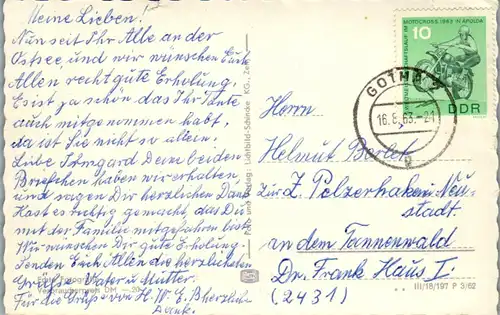 Meine Lieben!
Nun seit Ihr Alle an der
Ostsee, und wir wünschen Euch
Allen recht gute Erholung,
Es ist ja schön das Ihr Tante
auch mitgenommen habt,
da ist Sie nicht so allein.
Liebe Irmgard Deine beiden
Briefchen haben wir erhalten
und sagen Dir herzlichen Dank
Hast es richtig gemacht, das Du
mit der Familie mitgefahren bist
Wir wünschen Dir gute Erholung.
Senden Euch Allen die herzlichsten
Grüße Vater u Mutter.
Für die Grüße von H. W. E. B herzlichen
Dank.
Verbraucherpreis DM —20
Foto und Verlag: Lichtbild-Schincke KG., Zeitz
MOTOCROSS 1963 IN APOLDA
10
DDR
GOTHA 2
16.8.63.-21
Herrn
Helmut
zur Z. Pelzerhaken Neu-
stadt.
in dem Tannenwald
Dr. Frank Haus I.
(2431)
III/18/197 P 3/62